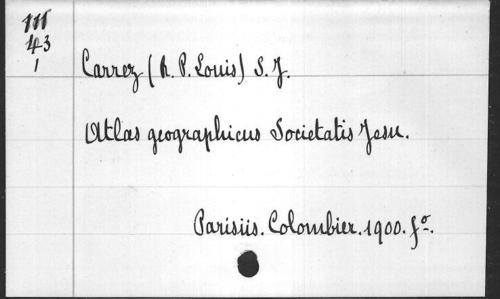 III
43
1
Carrez (R. P. Louis) S. J.
Atlas geographicus Societatis Jesu.
Parisiis. Colombier. 1900. fº.